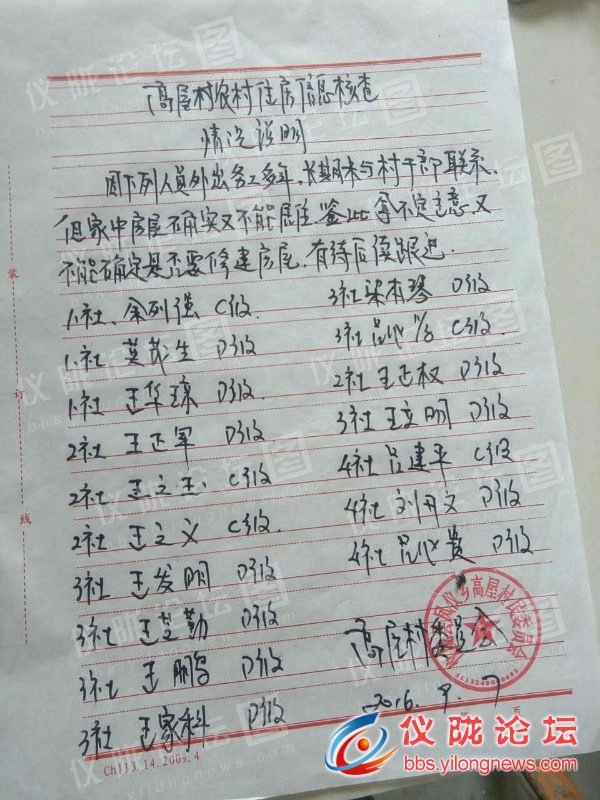 高屋村农村住房信息核查
情况说明
因下列人员外出务工多年，长期未与村干部联系，
但家中房屋确实又不能居住，鉴此拿不定主意，又
不能确定是否要修建房屋，有待后续跟进。
1社、余列强 C级
1社 莫茂生 D级
1社 王华琼 D级
2社 王正军 D级
2社 王文玉 C级
2社 王文义 C级.
3社 王发明 D级
3社 王芝勤 D级
3社 王鹏 D级
3社 王家科 D级
3社 梁本琴 D级
3社 吕 C级.
2社 王正权 D级
3社 王立明 D级
4社 吕建平 C级
4社 刘开文 D级
4社 吕 贵 D级
高屋村委员会
2016.9.7
乡高屋村民委员会
5113249000482
装
订
线
Ch113.14.2009.4
第 页
仪陇论坛
bbs.yilongnews.com
仪陇论坛图